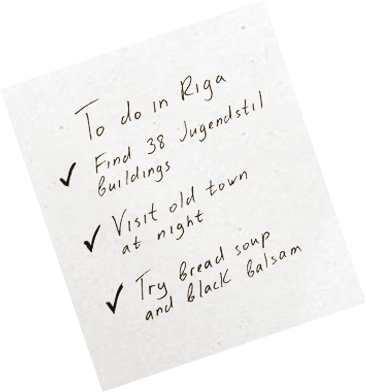 To do in Riga
✓ Find 38 Jugendstil
buildings
✓ Visit old town
at night
✓ Try bread soup
and black balsam